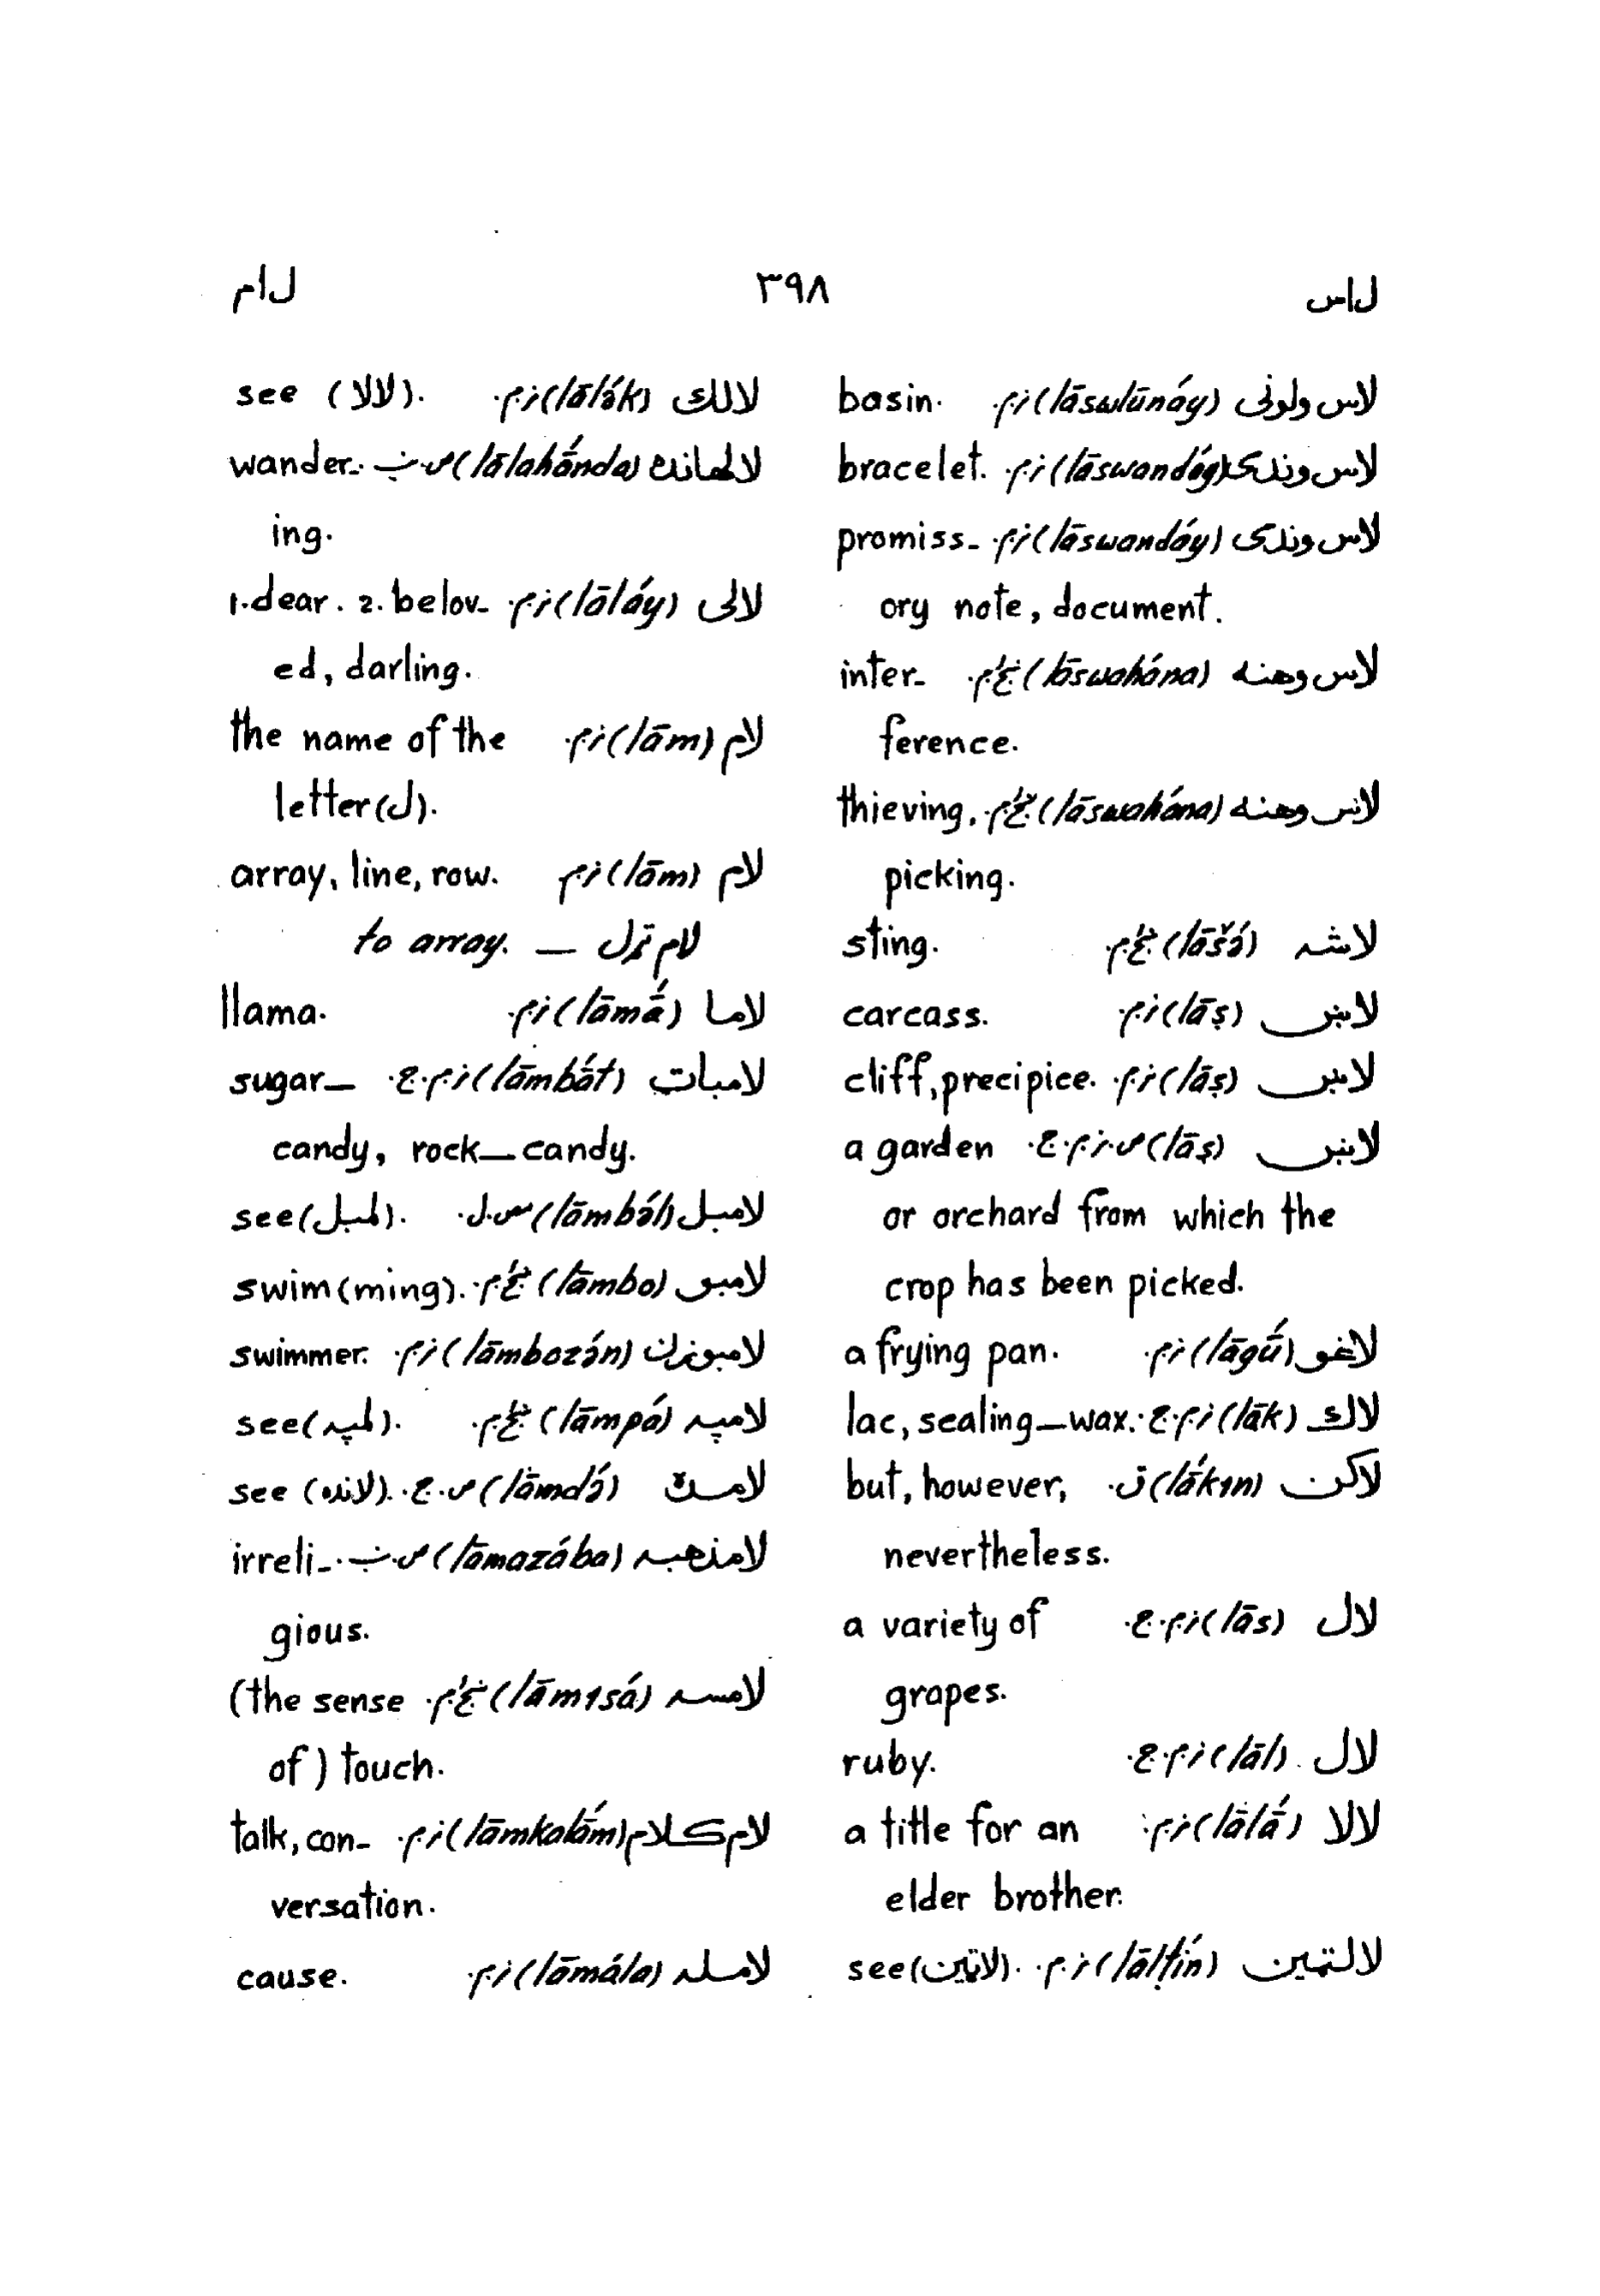 لاس ٣٩٨ لام
لاس ولونی (lāswlūnáy) ن.م. basin.
لاس وندی (lāswandáy) ن.م. bracelet.
لاس وندی (lāswandáy) ن.م. promiss-
ory note, document.
لاس وهنه (lāswahána) ښځ.م. inter-
ference.
لاس وهنه (lāswahána) ښځ.م. thieving,
picking.
لاشه (lāšá) ښځ.م. sting.
لاښ (lāṣ) ن.م. carcass.
لاښ (lāṣ) ن.م. cliff, precipice.
لاښ (lāṣ) ص.ن.م.ج. a garden
or orchard from which the
crop has been picked.
لاغو (lāgū́) ن.م. a frying pan.
لاک (lāk) ن.م.ج. lac, sealing-wax.
لاکن (lā́kın) ق. but, however,
nevertheless.
لال (lās) ن.م.ج. a variety of
grapes.
لال (lāl) ن.م.ج. ruby.
لالا (lālā́) ن.م. a title for an
elder brother.
لالټین (lālṭín) ن.م. see (لاټین).
لالک (lālə́k) ن.م. see (لالا).
لالهانده (lālahā́nda) ص.ب. wander-
ing.
لالی (lāláy) ن.م. 1. dear. 2. belov-
ed, darling.
لام (lām) ن.م. the name of the
letter (ل).
لام (lām) ن.م. array, line, row.
لام تړل — to array.
لاما (lāmā́) ن.م. llama.
لامبات (lāmbā́t) ن.م.ج. sugar-
candy, rock-candy.
لامبل (lāmbə́l) مص.ل. see (لمبل).
لامبو (lāmbo) ښځ.م. swim(ming).
لامبوزن (lāmbozə́n) ن.م. swimmer.
لامپه (lāmpá) ښځ.م. see (لمپه).
لامده (lāmdə́) ص.ج. see (لانده).
لامذهبه (lāmazába) ص.ب. irreli-
gious.
لامسه (lāmısá) ښځ.م. (the sense
of) touch.
لام کلام (lāmkalā́m) ن.م. talk, con-
versation.
لامله (lāmála) ن.م. cause.